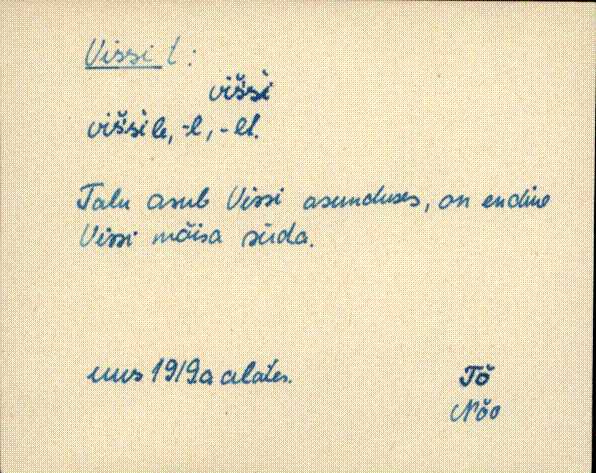 Vissi t:
višši
viššile, -l, -lt.
Talu asub Vissi asunduses, on endine
Vissi mõisa süda.
uus 1919.a alates.
Tõ
Nõo